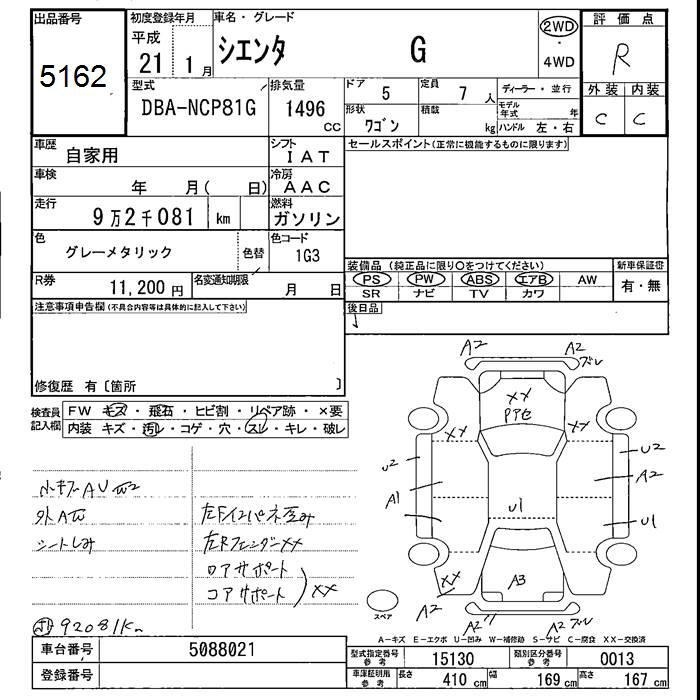 出品番号
5162
初度登録年月
平成
21 1 月
車名・グレード
シエンタ G
2WD
・
4WD
評価点
R
外装 内装
C C
型式
DBA-NCP81G
排気量
1496
CC
ドア 5
定員 7 人
形状
ワゴン
積載
kg
ディーラー・並行
モデル
年式 年
ハンドル 左・右
車歴 自家用
シフト
IAT
車検 年 月( 日)
冷房
AAC
走行 9万2千081 km
燃料
ガソリン
色 グレーメタリック
色替
色コード
1G3
R券 11,200 円
名変通知期限
月 日
セールスポイント(正常に機能するものに限ります)
装備品(純正品に限り○をつけてください)
PS PW ABS エアB AW
SR ナビ TV カワ
新車保証書
有・無
後日品
注意事項申告欄(不具合内容等は具体的に記入して下さい)
修復歴 有〔箇所 〕
検査員
記入欄
FW キズ・飛石・ヒビ割・リペア跡・×要
内装 キズ・汚レ・コゲ・穴・スレ・キレ・破レ
外A
シートしみ
左Fインパネ歪み
左RフェンダーXX
ロアサポート
コアサポート
XX
92081Km
A2 A2
XX
XX XX
U2 U2
A2
A1
U1 U1
XX A3
A2 A2
スペア
A-キズ E-エクボ U-凹み W-補修跡 S-サビ C-腐食 XX-交換済
車台番号 5088021
登録番号
型式指定番号
参考
15130
類別区分番号
参考
0013
車庫証明用
参考
長さ 410 cm 幅 169 cm 高さ 167 cm